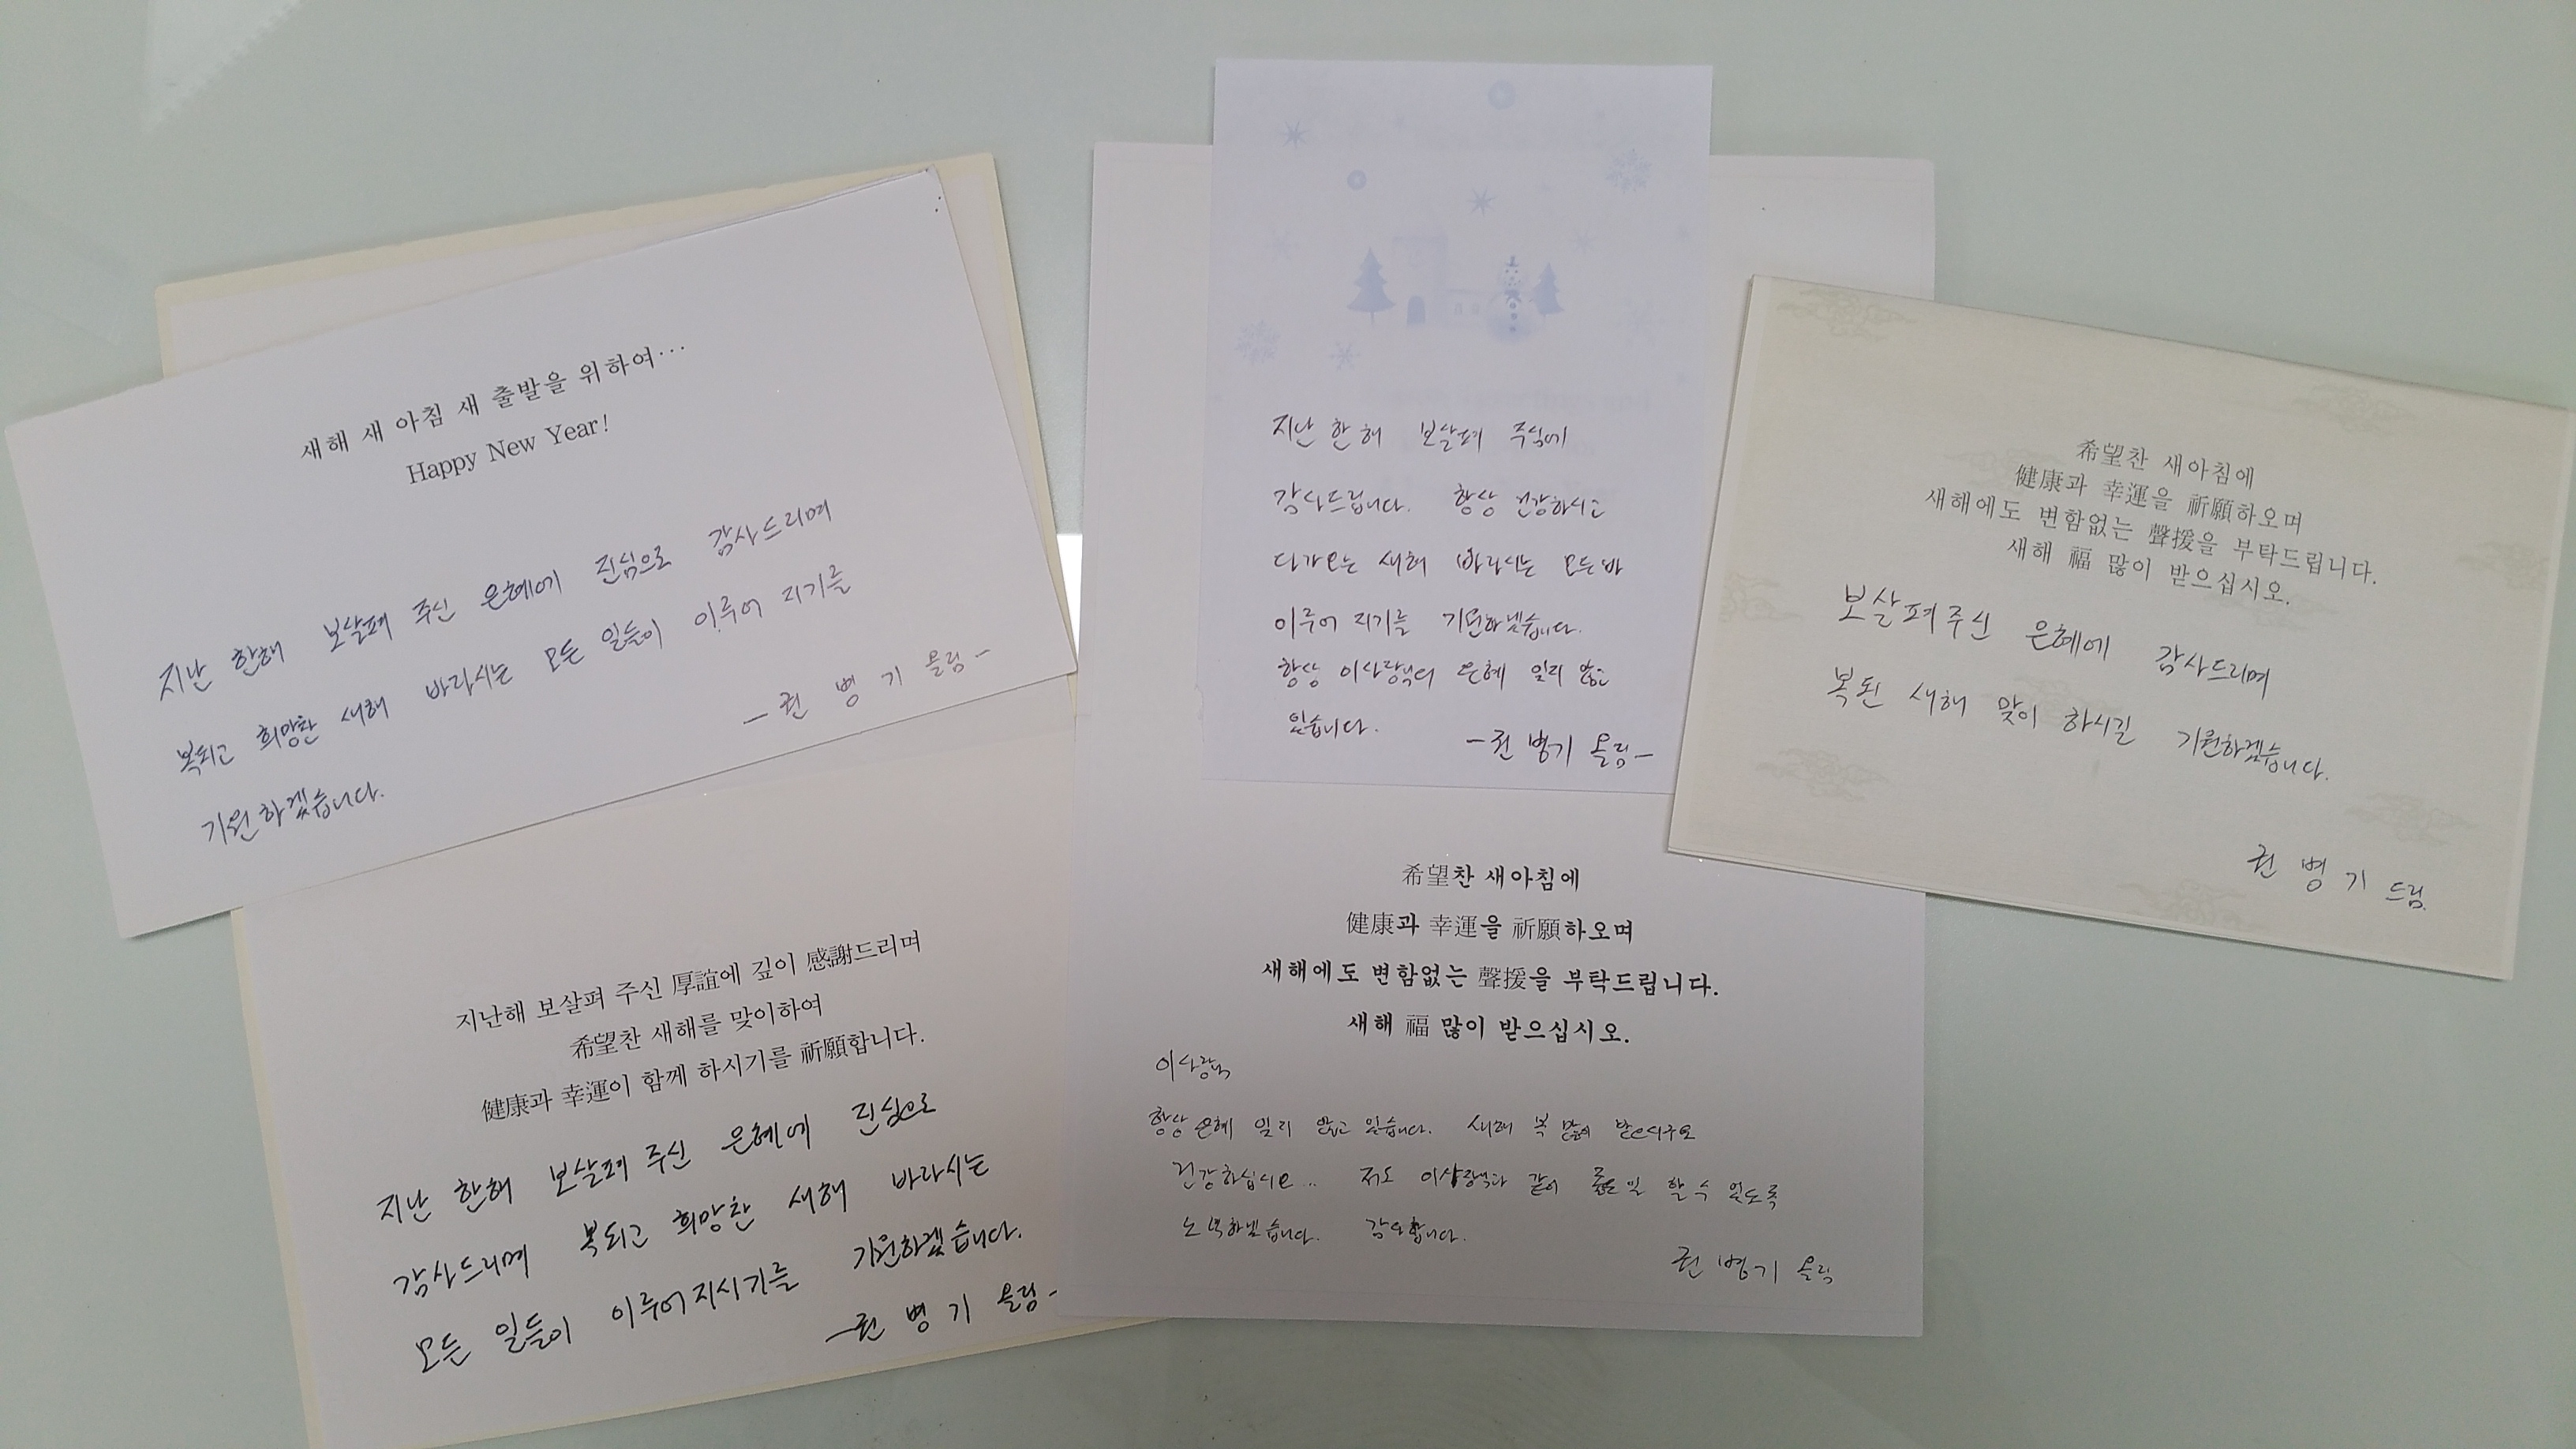 새해 새 아침 새 출발을 위하여…
Happy New Year!
지난 한해 보살펴 주신 은혜에 진심으로 감사드리며
복되고 희망찬 새해 바라시는 모든 일들이 이루어 지기를
기원하겠습니다.
- 권병기 올림 -
지난해 보살펴 주신 厚誼에 깊이 感謝드리며
希望찬 새해를 맞이하여
健康과 幸運이 함께 하시기를 祈願합니다.
지난 한해 보살펴 주신 은혜에 진심으로
감사드리며 복되고 희망찬 새해 바라시는
모든 일들이 이루어지시기를 기원하겠습니다.
- 권병기 올림 -
지난 한 해 보살펴 주심에
감사드립니다. 항상 건강하시고
다가오는 새해 바라시는 모든 바
이루어 지기를 기원하겠습니다.
항상 이사장님의 은혜 잊지 않고
있습니다.
- 권병기 올림 -
希望찬 새아침에
健康과 幸運을 祈願하오며
새해에도 변함없는 聲援을 부탁드립니다.
새해 福 많이 받으십시오.
이사장님
항상 은혜 잊지 않고 있습니다. 새해 복 많이 받으시구요
건강하십시오.. 저도 이사장님과 같이 일 할 수 있도록
노력하겠습니다. 감사합니다.
권병기 올림
希望찬 새아침에
健康과 幸運을 祈願하오며
새해에도 변함없는 聲援을 부탁드립니다.
새해 福 많이 받으십시오.
보살펴주신 은혜에 감사드리며
복된 새해 맞이 하시길 기원하겠습니다.
권병기 드림.